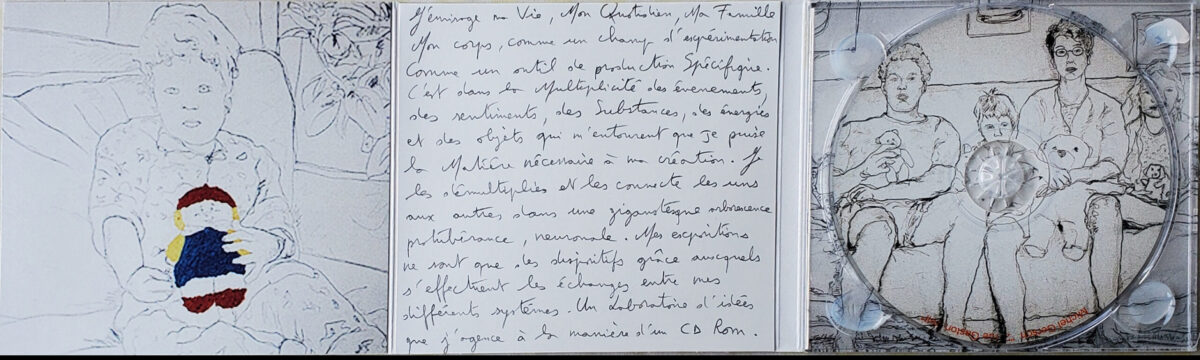 J'envisage ma Vie, Mon Quotidien, Ma Famille
Mon corps, comme un champ d'expérimentation
Comme un outil de production Spécifique.
C'est dans la Multiplicité des évenements,
des sentiments, des Substances, des énergies
et des objets qui m'entourent que je puise
la Matière nécaissaire à ma création. Je
les démultiplies et les connecte les uns
aux autres dans une gigantesque arborescence
protubérance, neuronale. Mes expositions
ne sont que des dispositifs grâce auxquels
s'effectuent les échanges entre mes
différents systèmes. Un Laboratoire d'idées
que j'agence à la manière d'un CD Rom.